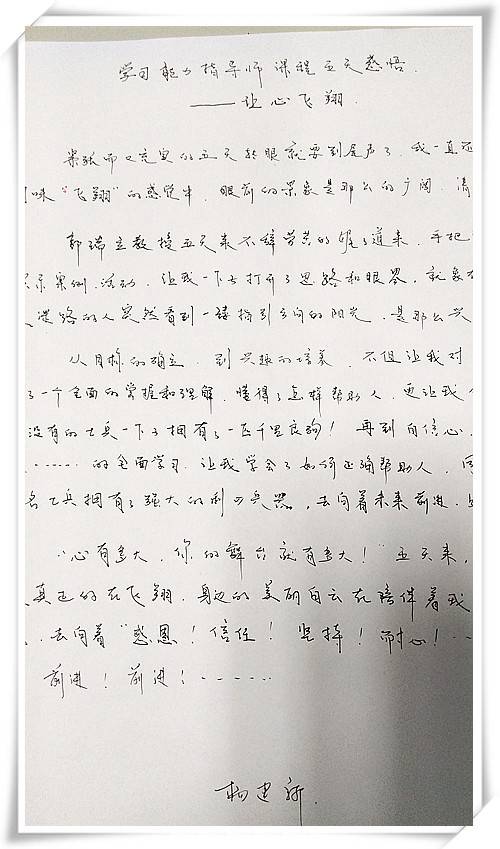 学习能力指导师课程五天感悟.
——让心飞翔.
紧张而又充实的五天转眼就要到尾声了、我一直还
味“飞翔”的感觉中、眼前的景象是那么的广阔、清
郭瑞立教授五天来不辞劳苦的娓娓道来、手把
示案例、活动、让我一下子打开了思路和眼界、就象在
迷路的人突然看到一缕指引方向的阳光、是那么兴
从目标的确立、到兴趣的培养、不但让我对
了一个全面的掌握和理解、懂得了怎样帮助人、更让我
没有的士兵一下子拥有了一匹千里良驹！再到自信心、
……的全面学习、让我学会了如何正确帮助人、
名士兵拥有了强大的利刃兵器、去向着未来前进、
“心有多大、你的舞台就有多大！”五天来、
真正的在飞翔、身边的美丽白云在陪伴着我
、去向着“感恩！信任！坚持！耐心！…
前进！前进！……
杨建新.